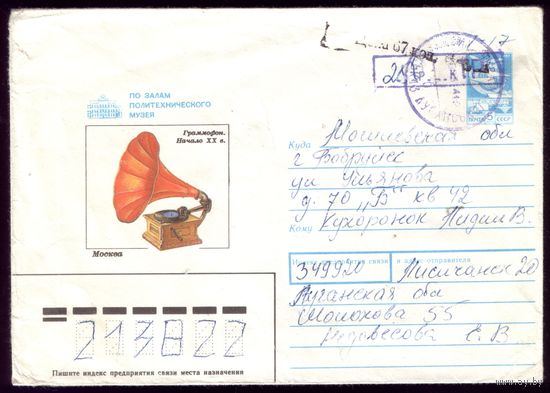 ПО ЗАЛАМ
ПОЛИТЕХНИЧЕСКОГО
МУЗЕЯ
Граммофон.
Начало XX в.
Москва
ПОЧТА СССР
Куда Могилевская обл
г Бобруйск
ул Ульянова
д. 70 "В" кв 42
Кому Кухоронок Лидии В.
Индекс предприятия связи и адрес отправителя
349920 Лисичанск 20
Луганская обл
Шолохова 55
Е. В
213822
Пишите индекс предприятия связи места назначения
ay.by